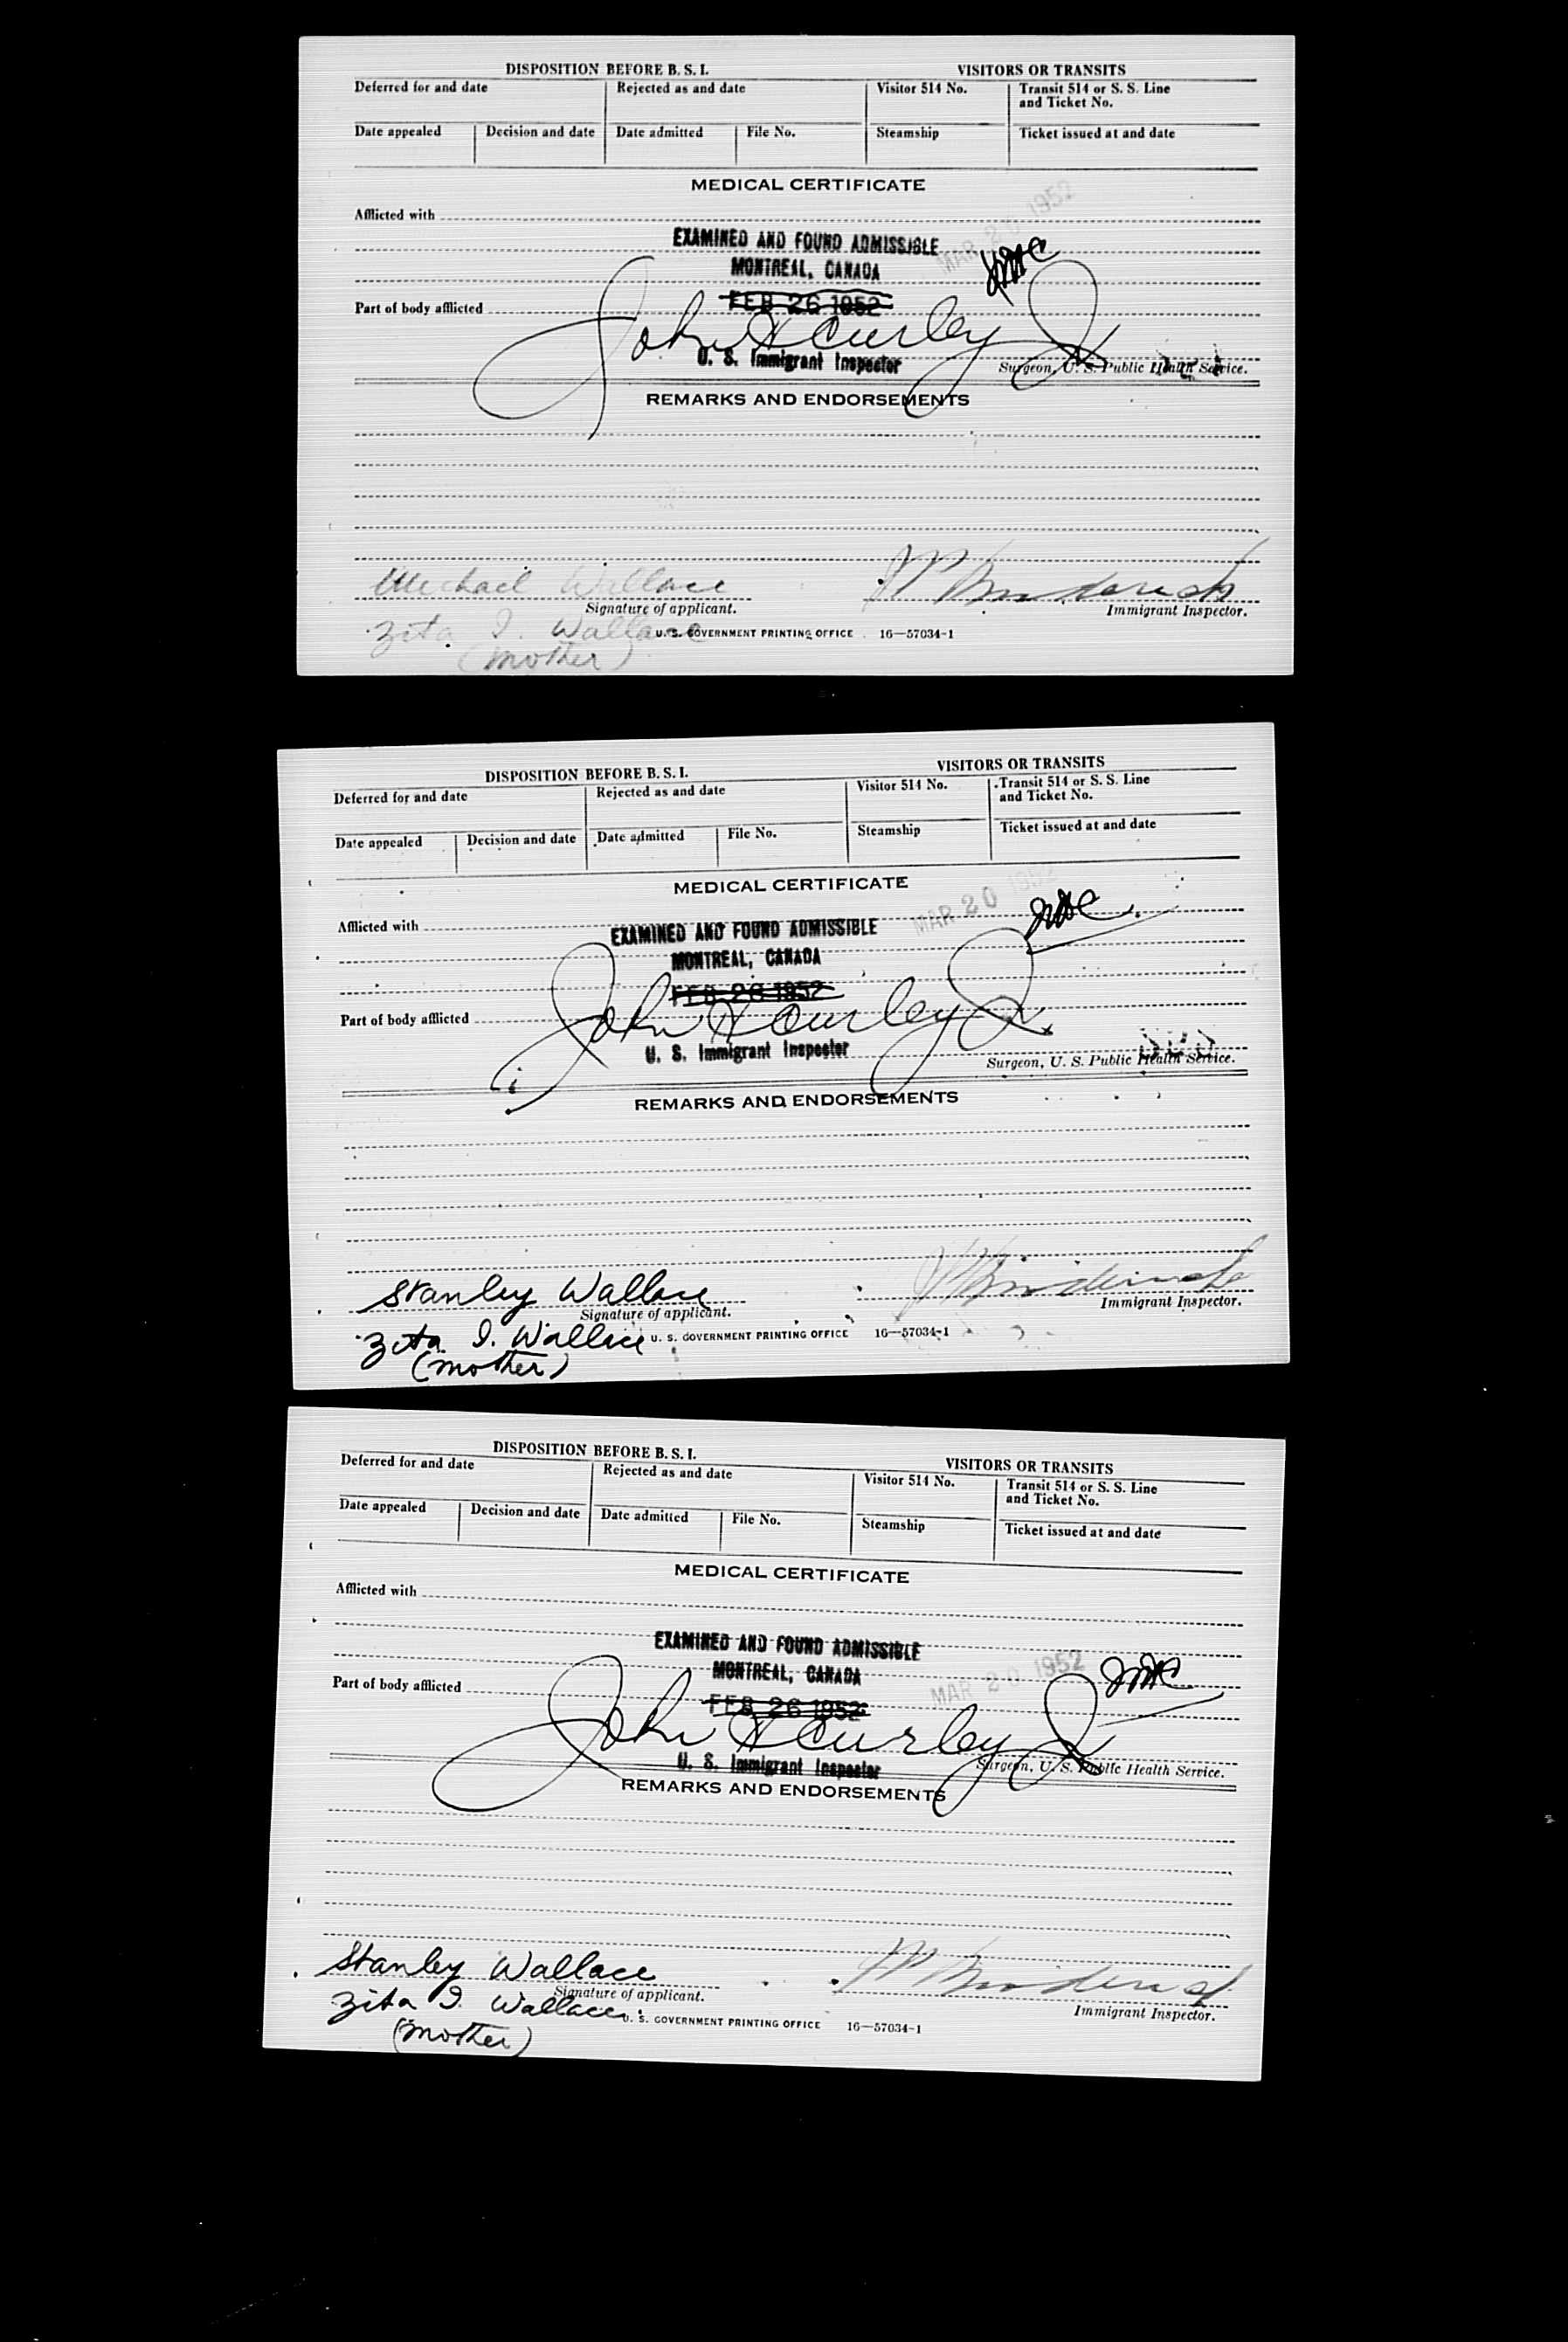 DISPOSITION BEFORE B. S. I. VISITORS OR TRANSITS
Deferred for and date Rejected as and date Visitor 514 No. Transit 514 or S. S. Line and Ticket No.
Date appealed Decision and date Date admitted File No. Steamship Ticket issued at and date
MEDICAL CERTIFICATE
MAR 20 1952
Afflicted with
EXAMINED AND FOUND ADMISSIBLE
MONTREAL, CANADA
FEB 26 1952
Part of body afflicted
John H Curley Jr
U. S. Immigrant Inspector
Surgeon, U. S. Public Health Service.
REMARKS AND ENDORSEMENTS
Michael Wallace
Signature of applicant. Immigrant Inspector.
Zita I. Wallace U. S. GOVERNMENT PRINTING OFFICE 16—57034-1
(mother)
DISPOSITION BEFORE B. S. I. VISITORS OR TRANSITS
Deferred for and date Rejected as and date Visitor 514 No. Transit 514 or S. S. Line and Ticket No.
Date appealed Decision and date Date admitted File No. Steamship Ticket issued at and date
MEDICAL CERTIFICATE
MAR 20 1952
Afflicted with
EXAMINED AND FOUND ADMISSIBLE
MONTREAL, CANADA
FEB 26 1952
Part of body afflicted
John H Curley Jr
U. S. Immigrant Inspector
Surgeon, U. S. Public Health Service.
REMARKS AND ENDORSEMENTS
Stanley Wallace
Signature of applicant. Immigrant Inspector.
Zita I. Wallace U. S. GOVERNMENT PRINTING OFFICE 16—57034-1
(mother)
DISPOSITION BEFORE B. S. I. VISITORS OR TRANSITS
Deferred for and date Rejected as and date Visitor 514 No. Transit 514 or S. S. Line and Ticket No.
Date appealed Decision and date Date admitted File No. Steamship Ticket issued at and date
MEDICAL CERTIFICATE
Afflicted with
EXAMINED AND FOUND ADMISSIBLE
MONTREAL, CANADA
MAR 20 1952
Part of body afflicted
FEB 26 1952
John H Curley Jr
U. S. Immigrant Inspector
Surgeon, U. S. Public Health Service.
REMARKS AND ENDORSEMENTS
Stanley Wallace
Signature of applicant. Immigrant Inspector.
Zita I. Wallace U. S. GOVERNMENT PRINTING OFFICE 16—57034-1
(mother)